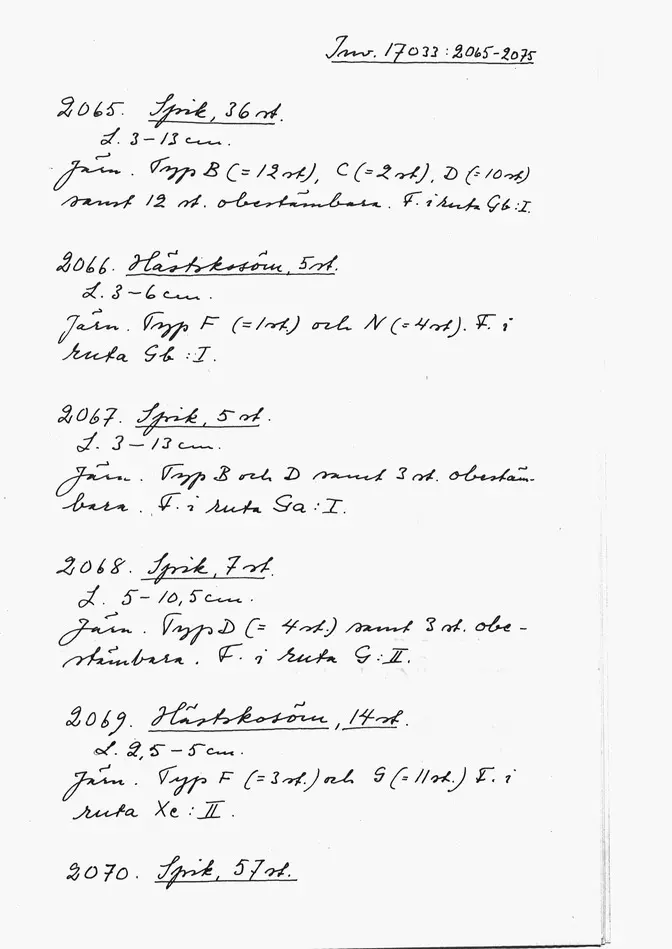 Inv. 17033:2065-2075
2065. Spik, 36 st.
L. 3-13 cm.
Järn. Typ B (= 12 st), C (= 2 st), D (= 10 st)
samt 12 st. obestämbara. F. i ruta Gb:I.
2066. Hästskosöm, 5 st.
L. 3-6 cm.
Järn. Typ F (= 1 st.) och N (= 4 st). F. i
ruta Gb:I.
2067. Spik, 5 st.
L. 3-13 cm.
Järn. Typ B och D samt 3 st. obestäm-
bara. F. i ruta Ga:I.
2068. Spik, 7 st.
L. 5-10,5 cm.
Järn. Typ D (= 4 st.) samt 3 st. obe-
stämbara. F. i ruta G:II.
2069. Hästskosöm, 14 st.
L. 2,5-5 cm.
Järn. Typ F (= 3 st.) och G (= 11 st.) F. i
ruta Xc:II.
2070. Spik, 57 st.